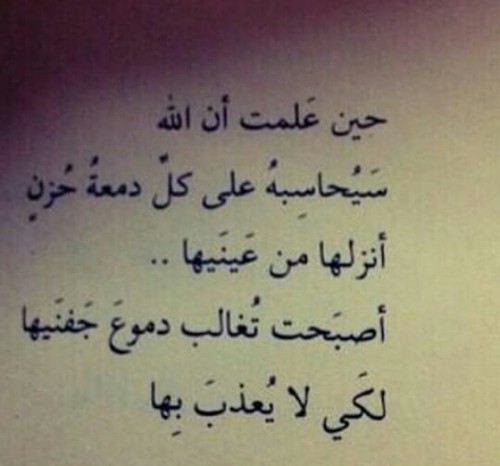 حين عَلمت أن الله
سَيُحاسِبهُ على كلّ دمعةُ حُزنٍ
أنزلها من عَينَيها ..
أصبَحت تُغالب دموعَ جَفنَيها
لكَي لا يُعذبَ بِها